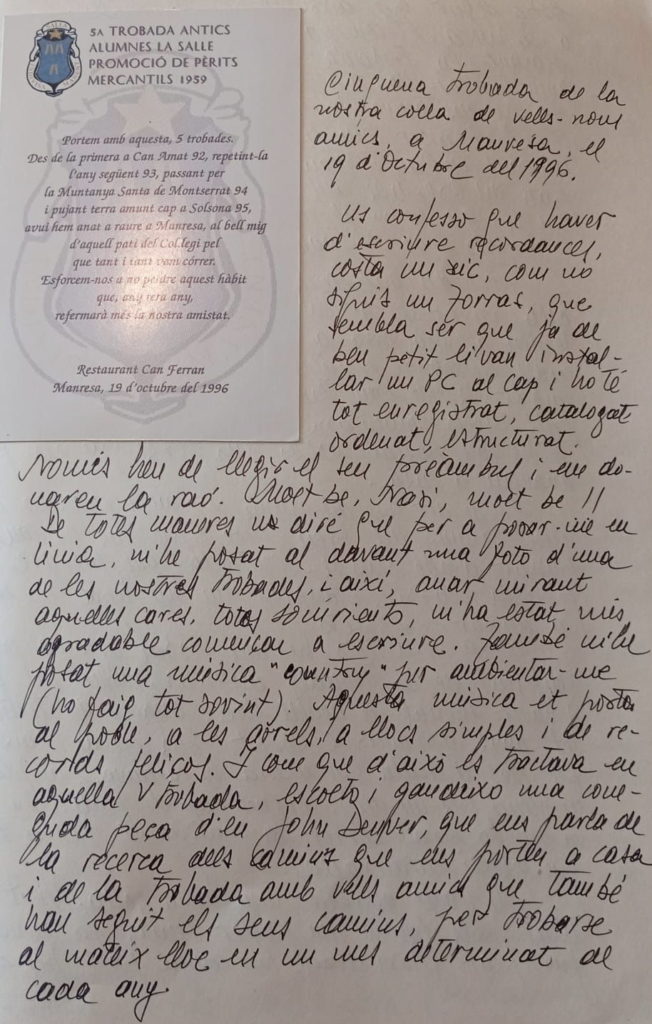 5A TROBADA ANTICS
ALUMNES LA SALLE
PROMOCIÓ DE PÈRITS
MERCANTILS 1959
Portem amb aquesta, 5 trobades.
Des de la primera a Can Amat 92, repetint-la
l'any següent 93, passant per
la Muntanya Santa de Montserrat 94
i pujant terra amunt cap a Solsona 95,
avui hem anat a raure a Manresa, al bell mig
d'aquell pati del Col.legi pel
que tant i tant vam córrer.
Esforcem-nos a no perdre aquest hàbit
que, any rera any,
refermarà més la nostra amistat.
Restaurant Can Ferran
Manresa, 19 d'octubre del 1996
Cinquena trobada de la
nostra colla de vells-nous
amics, a Manresa, el
19 d'Octubre del 1996.
Us confesso que haver
d'escriure recordances,
costa un xic, com no
siguis un Torras, que
sembla ser que ja de
ben petit li van instal-
lar un PC al cap i ho té
tot enregistrat, catalogat
ordenat, estructurat.
Només heu de llegir el seu preàmbul i em do-
nareu la raó. Molt be, molt be !!
De totes maneres us diré que per a posar-me en
linia, m'he posat al davant una foto d'una
de les nostres trobades, i així, anar mirant
aquelles cares, totes somrients, m'ha estat més
agradable començar a escriure. També m'he
posat una música "country" per ambientar-me
(ho faig tot sovint). Aquesta música et porta
al poble, a les arrels, a llocs simples i de re-
cords feliços. I com que d'això es tractava en
aquella V trobada, escolto i gaudeixo una cone-
guda peça d'en John Denver, que ens parla de
la recerca dels camins que ens porten a casa
i de la trobada amb vells amics que també
han seguit els seus camins, per trobarse
al mateix lloc en un mes determinat de
cada any.